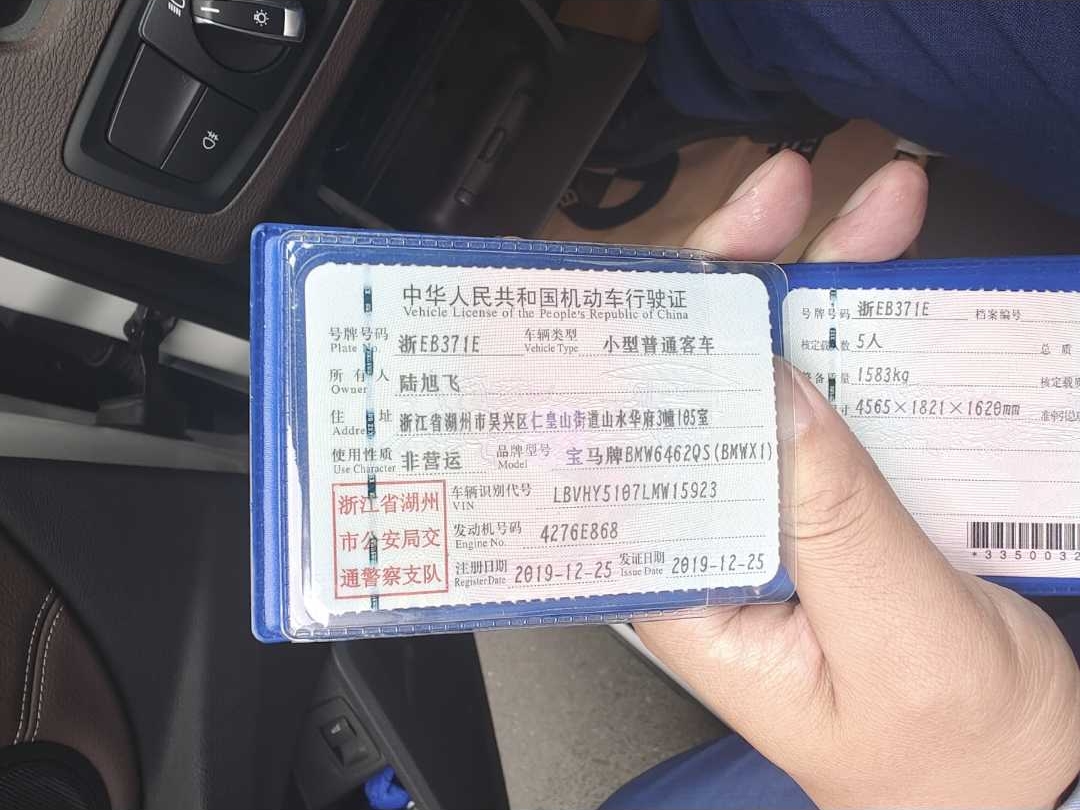 中华人民共和国机动车行驶证
Vehicle License of the People's Republic of China
号牌号码 浙EB371E 车辆类型 小型普通客车
Plate No. Vehicle Type
所有人 陆旭飞
Owner
住址 浙江省湖州市吴兴区仁皇山街道山水华府3幢105室
Address
使用性质 非营运 品牌型号 宝马牌BMW6462QS(BMWX1)
Use Character Model
浙江省湖州
市公安局交
通警察支队
车辆识别代号 LBVHY5107LMW15923
VIN
发动机号码 4276E868
Engine No.
注册日期 2019-12-25 发证日期 2019-12-25
Register Date Issue Date
号牌号码 浙EB371E 档案编号
核定载人数 5人 总质
整备质量 1583kg 核定载质
寸 4565×1821×1620mm 准牵引总
*3350032